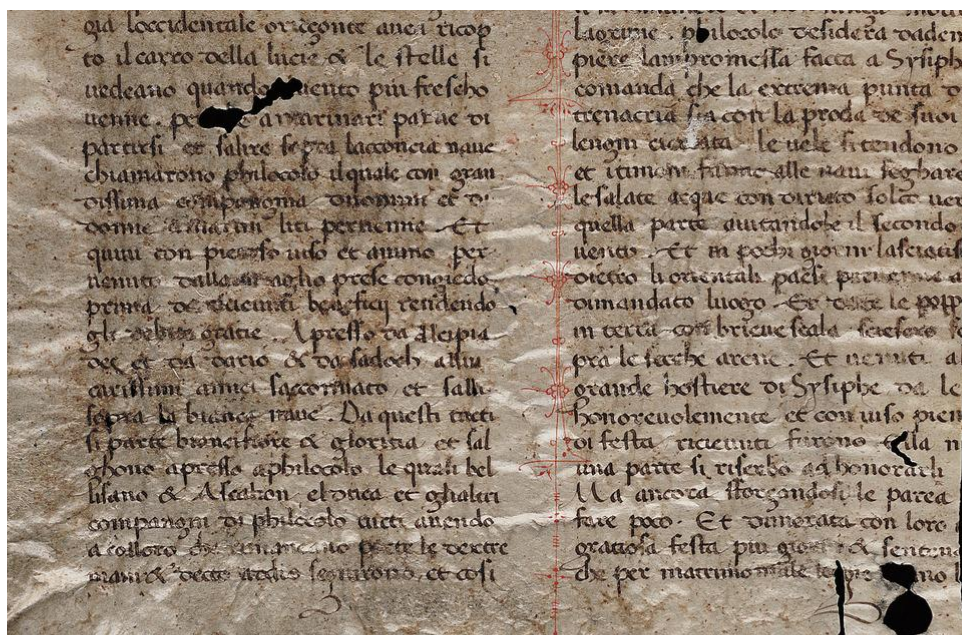 gia loccidentale orizonte avea ricop
to il carro della lucie & le stelle si
vedeano quando vento piu frescho
venne. a marinari parve di
partirsi et salire sopra lacconcia nave
chiamarono philocolo il quale con gran
dissima compongnia duomini et di
donne a marini liti pervenne. Et
quivi con piatoso viso et animo per
venuto dalla prese congiedo
prima de ricievuti beneficij rendendo
gli debite gratie. Apresso da
et da dario & da sadoch
carissimi amici saccomiato et salli
sopra la biancha nave. Da questi tutti
si parte biancifiore & gloritia et sal
ghono apresso a philocolo le quali bel
lisano & Ascalion el duca et ghaltri
compangni di philocolo tutti avendo
a coloro che rimaneano porte le dextre
mani & decto addio seguirono. et cosi
lagrime. philocolo desidera dadem
piere lampromessa facta a Sysiph
comanda che la extrema punta d
trenacria sia con la proda de suoi
lengni ciercata le vele si tendono
et i timoni fanno alle navi seghare
le salate acque con diricto solco ver
quella parte aiutandole il secondo
vento. Et in pochi giorni lasciatisi
dietro li orientali paesi pervenne a
dimandato luogo. Et le popp
in terra con brieve scala sciesero
pra le secche arene. Et venuti a
grande hostiere di Sysiphe da le
honorevolemente et con viso pien
di festa ricievuti furono
una parte si riserbo ad honorarli
Ma ancora sforzandosi le parea
fare poco. Et dimorata con loro
gratiosa festa piu giorni & senten
che per matrimoniale